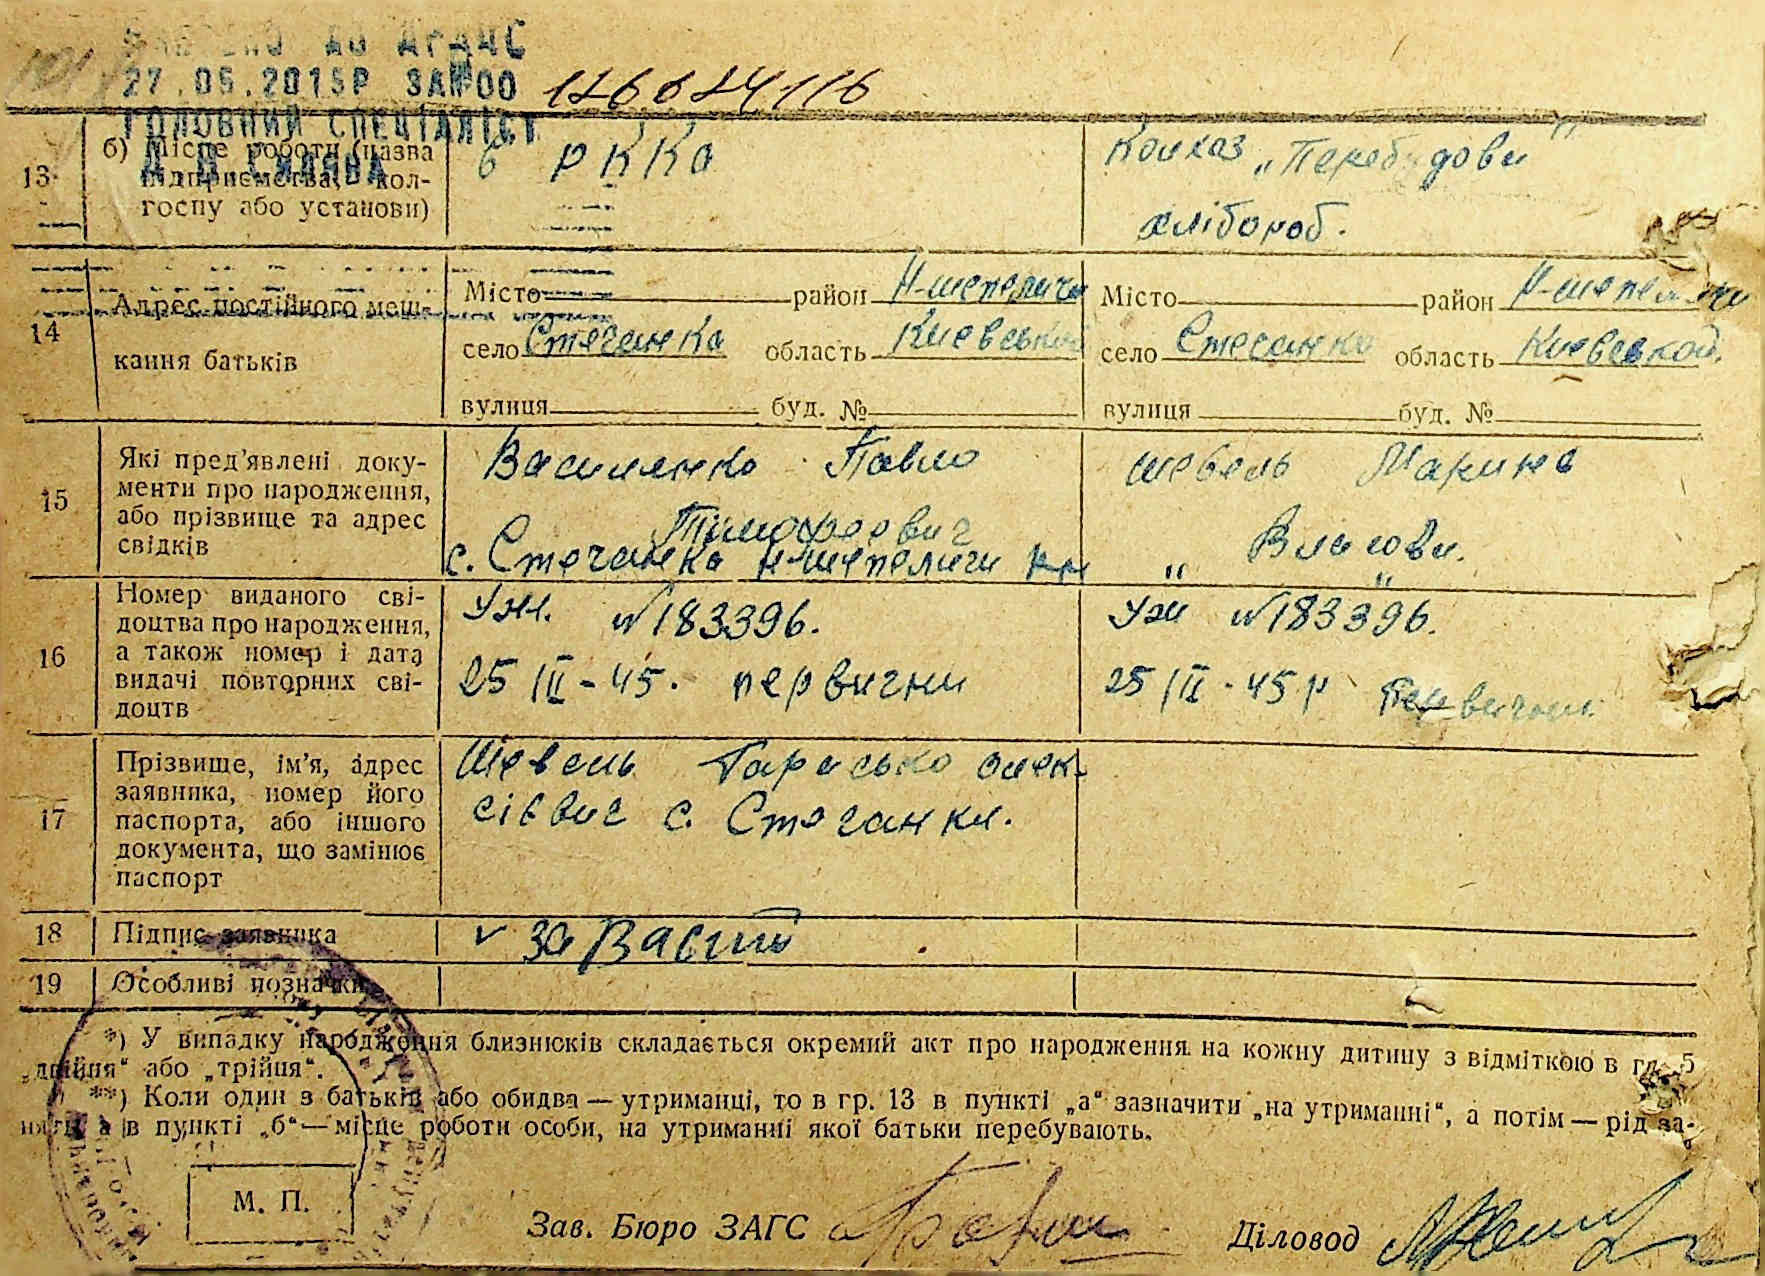 ДО ДРАЦС
27.05.2015Р ЗА №00 126084116
ГОЛОВНИЙ СПЕЦІАЛІСТ
13 б) Місце роботи (назва підприємства, колгоспу або установи)
в РККа
Колхаз „Перебудови"
хлібороб.
14 Адрес постійного мешкання батьків
Місто район Н-шепеличи
село Стечанка область Киевськой
вулиця буд. №
Місто район Н-шепеличи
село Стечанка область Киевськой.
вулиця буд. №
15 Які пред'явлені документи про народження, або прізвище та адрес свідків
Василенко Павло
Тимофеевич
с. Стечанка Н-шепеличи
Шевель Марина
„ „
16 Номер виданого свідоцтва про народження, а також номер і дата видачі повторних свідоцтв
УЖ. №183396.
25/III-45. первични
УЖ №183396.
25/III-45р первични
17 Прізвище, ім'я, адрес заявника, номер його паспорта, або іншого документа, що замінює паспорт
Шевель Тарасько Олек-
сієвич с. Стечанки.
18 Підпис заявника
19 Особливі позначки
*) У випадку народження близнюків складається окремий акт про народження на кожну дитину з відміткою в гр. 5
„двійня“ або „трійця“.
**) Коли один з батьків або обидва — утриманці, то в гр. 13 в пункті „а“ зазначити „на утриманні“, а потім — рід за-
няття, а в пункті „б“ — місце роботи особи, на утриманні якої батьки перебувають.
М. П.
Зав. Бюро ЗАГС
Діловод